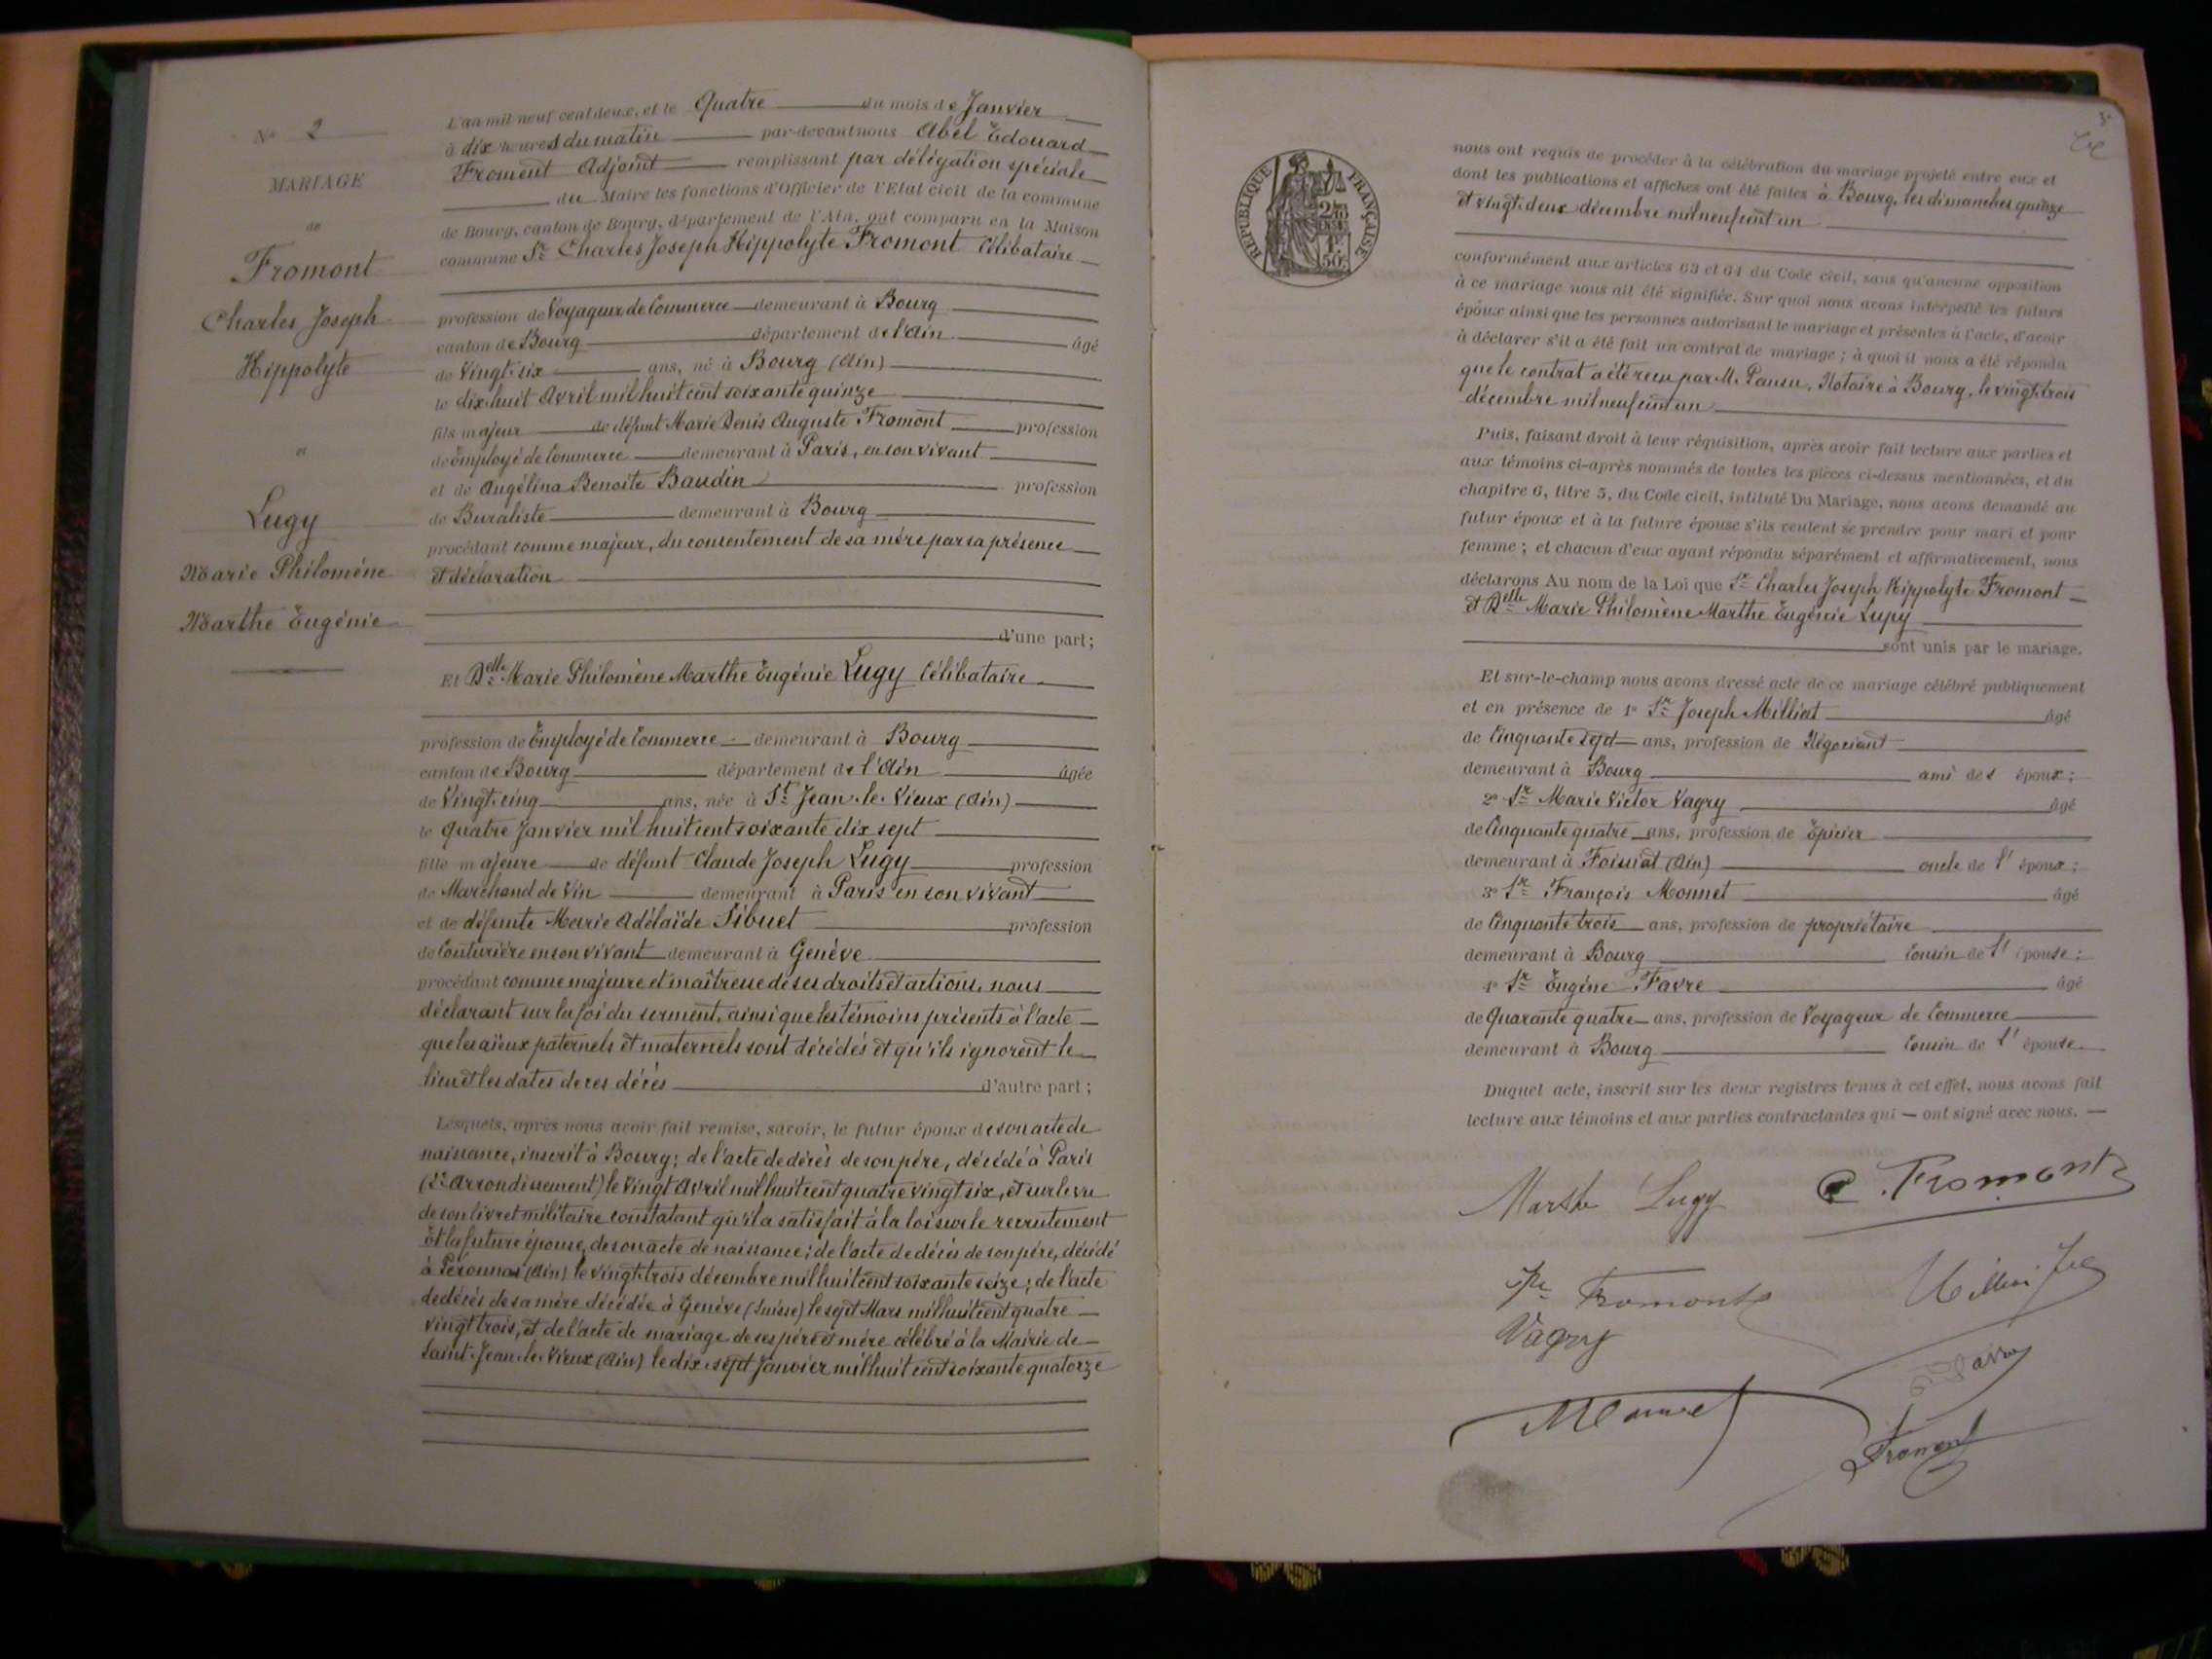 N° 2
MARIAGE
de
Fromont
Charles Joseph
Hippolyte
et
Lugy
Marie Philomène
Marthe Eugénie
L'an mil neuf cent deux, et le Quatre du mois de Janvier
à dix heures du matin par-devant nous Abel Edouard
Froment Adjoint remplissant par délégation spéciale
du Maire les fonctions d'Officier de l'Etat civil de la commune
de Bourg, canton de Bourg, département de l'Ain, ont comparu en la Maison
commune Sr Charles Joseph Hippolyte Fromont Célibataire
profession de Voyageur de Commerce demeurant à Bourg
canton de Bourg département de l'Ain âgé
de Vingt-six ans, né à Bourg (Ain)
le dix-huit Avril mil huit cent soixante quinze
fils majeur de défunt Marie Denis Auguste Fromont profession
de Employé de Commerce demeurant à Paris, en son vivant
et de Angélina Benoite Baudin profession
de Buraliste demeurant à Bourg
procédant comme majeur, du consentement de sa mère par sa présence
et déclaration
d'une part;
Et Delle Marie Philomène Marthe Eugénie Lugy Célibataire
profession de Employé de Commerce demeurant à Bourg
canton de Bourg département de l'Ain âgée
de Vingt-cinq ans, née à St Jean-le-Vieux (Ain)
le quatre Janvier mil huit cent soixante dix sept
fille majeure de défunt Claude Joseph Lugy profession
de Marchand de Vin demeurant à Paris en son vivant
et de défunte Marie Adélaïde Sibuet profession
de Couturière en son vivant demeurant à Genève
procédant comme majeure et maîtresse de ses droits et actions, nous
déclarant sur la foi du serment, ainsi que les témoins présents à l'acte
que les aïeux paternels et maternels sont décédés et qu'ils ignorent le
lieu et les dates de ces décès d'autre part;
Lesquels, après nous avoir fait remise, savoir, le futur époux de son acte de
naissance, inscrit à Bourg; de l'acte de décès de son père, décédé à Paris
Arrondissement) le Vingt Avril mil huit cent quatre vingt six, et sur le vu
de son livret militaire constatant qu'il a satisfait à la loi sur le recrutement
Et la future épouse, de son acte de naissance; de l'acte de décès de son père, décédé
à Péronnas (Ain) le vingt-trois décembre mil huit cent soixante seize; de l'acte
de décès de sa mère décédée à Genève (Suisse) le sept Mars mil huit cent quatre
vingt trois, et de l'acte de mariage de ses père et mère célébré à la Mairie de
Saint-Jean-le-Vieux (Ain) le dix-sept Janvier mil huit cent soixante quatorze
REPUBLIQUE FRANÇAISE
nous ont requis de procéder à la célébration du mariage projeté entre eux et
dont les publications et affiches ont été faites à Bourg, les dimanches quinze
et vingt-deux décembre mil neuf cent un
conformément aux articles 63 et 64 du Code civil, sans qu'aucune opposition
à ce mariage nous ait été signifiée. Sur quoi nous avons interpellé les futurs
époux ainsi que les personnes autorisant le mariage et présentes à l'acte, d'avoir
à déclarer s'il a été fait un contrat de mariage; à quoi il nous a été répondu
que le contrat a été reçu par M. Pansu, Notaire à Bourg, le vingt-trois
décembre mil neuf cent un
Puis, faisant droit à leur réquisition, après avoir fait lecture aux parties et
aux témoins ci-après nommés de toutes les pièces ci-dessus mentionnées, et du
chapitre 6, titre 5, du Code civil, intitulé Du Mariage, nous avons demandé au
futur époux et à la future épouse s'ils veulent se prendre pour mari et pour
femme; et chacun d'eux ayant répondu séparément et affirmativement, nous
déclarons Au nom de la Loi que Sr Charles Joseph Hippolyte Fromont
et Delle Marie Philomène Marthe Eugénie Lupy
sont unis par le mariage.
Et sur-le-champ nous avons dressé acte de ce mariage célébré publiquement
et en présence de 1° Sr Joseph Milliat âgé
de Cinquante sept ans, profession de Négociant
demeurant à Bourg ami des époux;
2° Sr Marie Victor Vagry âgé
de Cinquante quatre ans, profession de Epicier
demeurant à Foissiat (Ain) oncle de l' époux;
3° Sr François Monnet âgé
de Cinquante trois ans, profession de propriétaire
demeurant à Bourg Cousin de l' épouse;
4° Sr Eugène Favre âgé
de Quarante quatre ans, profession de Voyageur de Commerce
demeurant à Bourg Cousin de l' épouse
Duquel acte, inscrit sur les deux registres tenus à cet effet, nous avons fait
lecture aux témoins et aux parties contractantes qui — ont signé avec nous. —
Marthe Lugy C. Fromont
Fromont
Vagry
Favre
Monnet
Froment